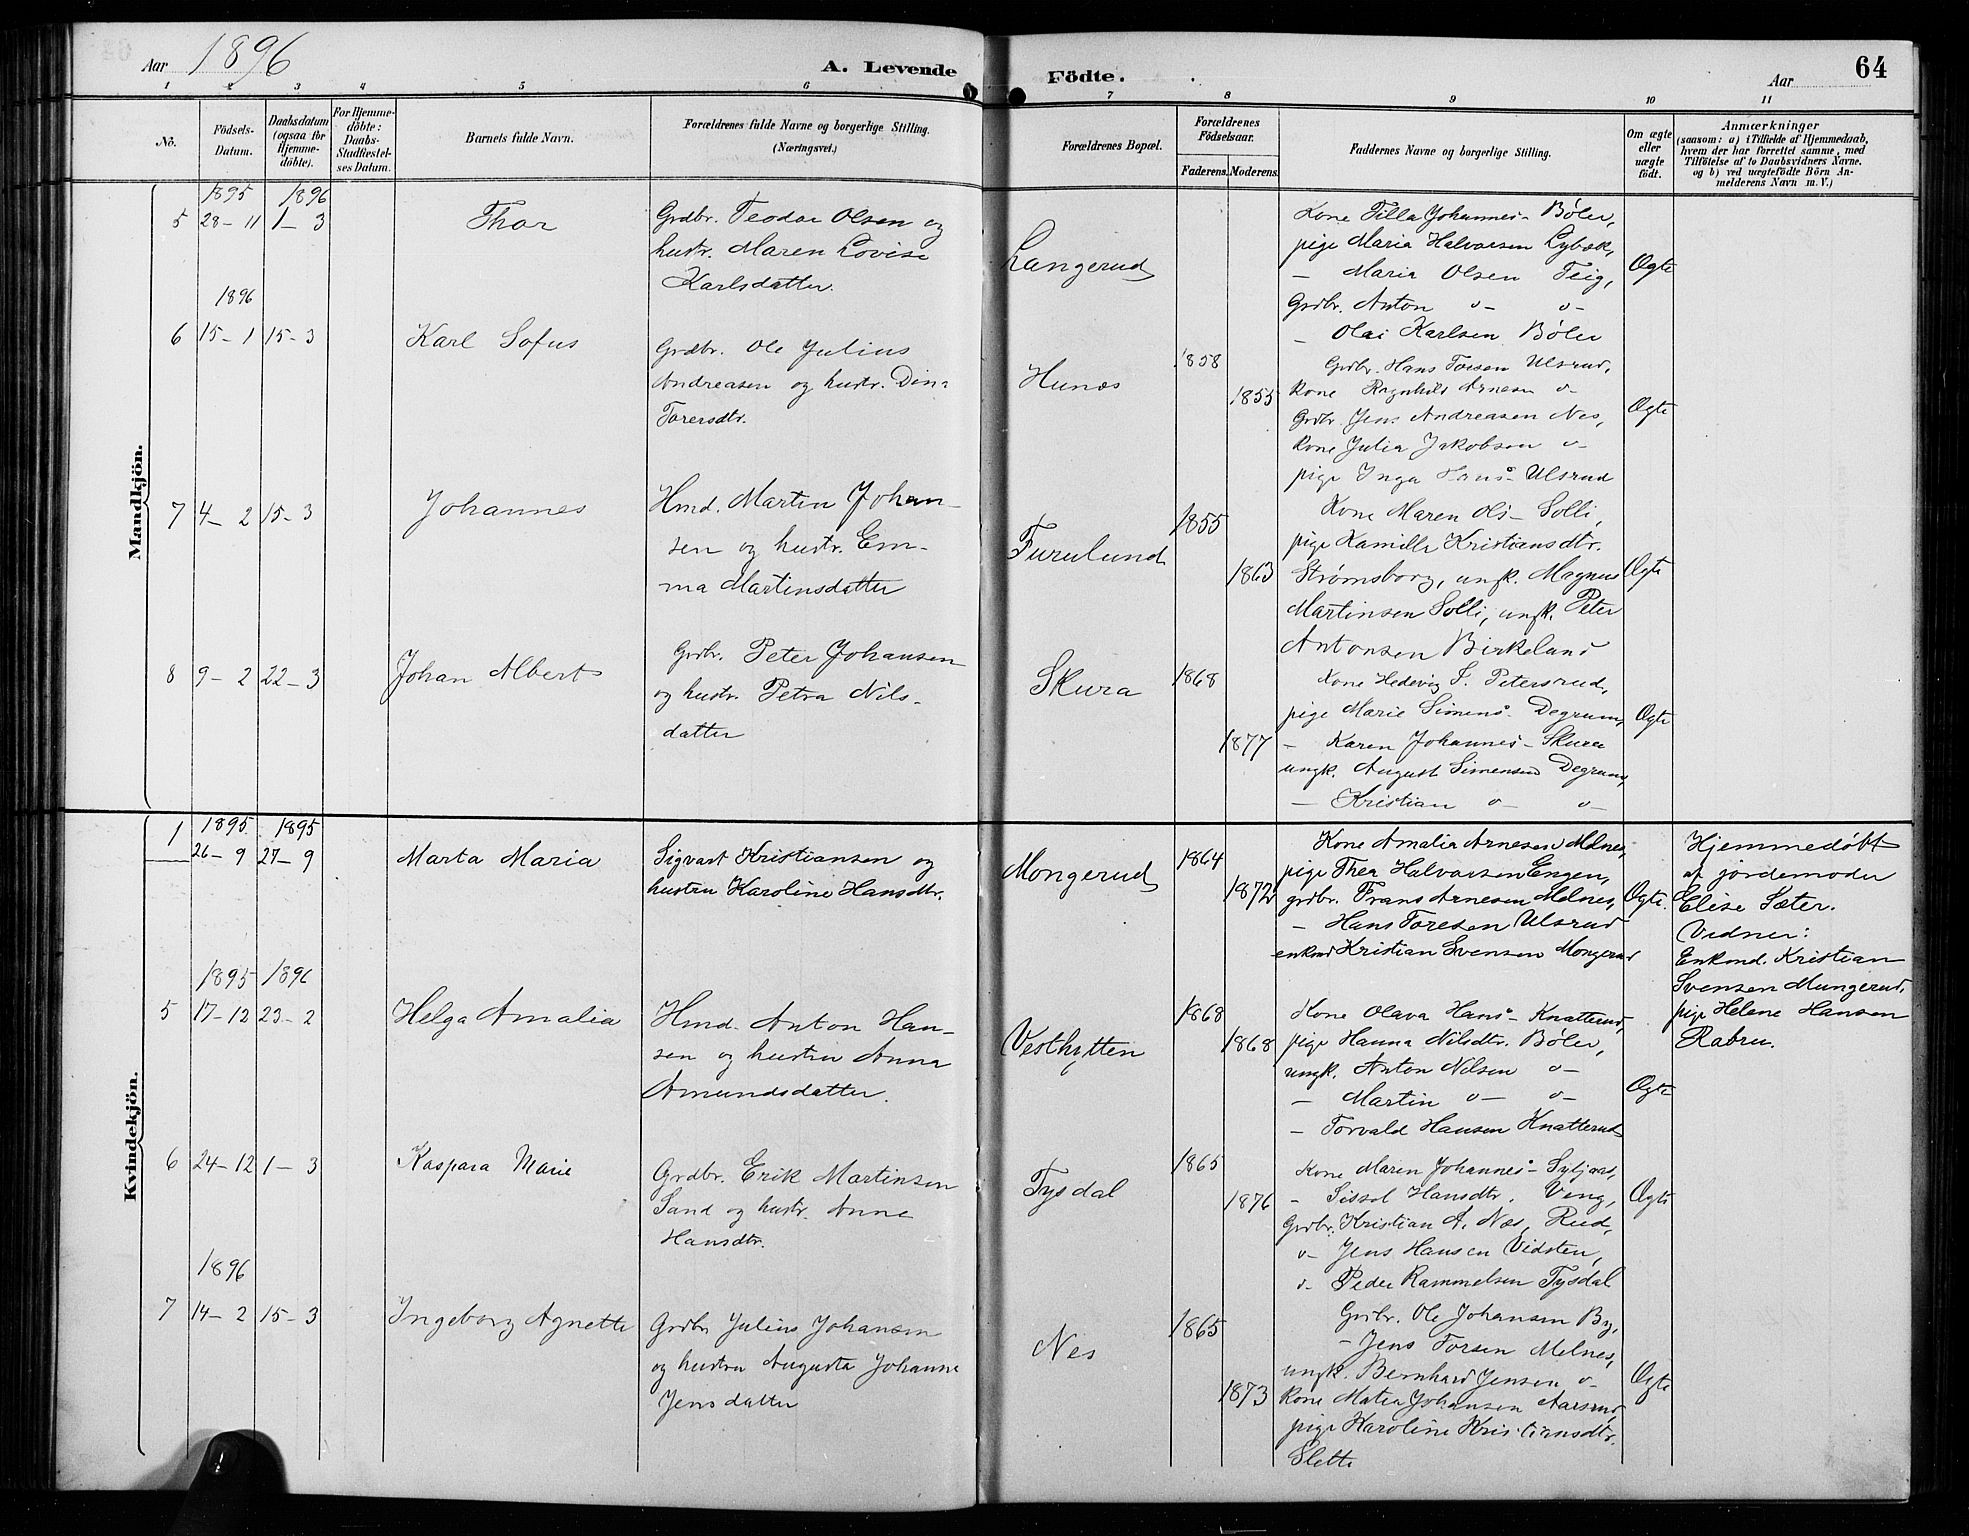 Aar 1896
A. Levende
Födte.
Aar
64
1 2 3 4 5 6 7 8 9 10 11
No.
Födsels-
Datum.
Daabsdatum
(ogsaa for
Hjemme-
döbte).
For Hjemme-
döbte:
Daabs-
Stadfæstel-
ses Datum.
Barnets fulde Navn.
Forældrenes fulde Navne og borgerlige Stilling.
(Næringsvei.)
Forældrenes Bopæl.
Forældrenes
Födselsaar.
Faderens. Moderens.
Faddernes Navne og borgerlige Stilling.
Om ægte
eller
uægte
födt.
Anmærkninger
(saasom: a) i Tilfælde af Hjemmedaab,
hvem der har forrettet samme, med
Tilföielse af to Daabsvidners Navne.
og b) ved uægtefödte Börn An-
melderens Navn m. V.)
Mandkjön.
1895 1896
5 28-11 1-3
Thor
Grdbr. Teodor Olsen og
hustr. Maren Lovise
Karlsdatter.
Langerud
Kone Tilla Johannes- Bøler,
pige Maria Halvorsen Lybæk,
- Maria Olsen Teig,
Grdbr. Anton o- o-
- Olai Karlsen Bøler
Ægte
1896
6 15-1 15-3
Karl Sofus
Grdbr. Ole Julius
Andreasen og hustr. Din-
Torersdtr.
Hunæs
1858
1855
Grdbr. Hans Toresen Ulsrud,
Kone Ragnhild Arnesen o-
Grdbr. Jens Andreasen Nes,
Kone Julia Jakobsen o-
pige Inga Hans- Ulsrud
Ægte
7 4-2 15-3
Johannes
Hmd. Martin Johan-
sen og hustr. Em-
ma Martinsdatter
Furulund
1855
1863
Kone Maren Ols- Solli,
pige Kamilla Kristiansdtr.
Strømsborg, ungk. Magnus
Martinsen Solli, ungk. Peter
Antonsen Birkeland
Ægte
8 9-2 22-3
Johan Albert
Grdbr. Peter Johansen
og hustr. Petra Nils-
datter
Skura
1868
1877
Kone Hedevig S. Petersrud,
pige Marie Simens- Degrum,
- Karen Johannes- Skura
ungk. August Simensen Degrum,
- Kristian o- o-
Ægte
Kvindekjön.
1 1895 1895
26-9 27-9
Marta Maria
Sigvart Kristiansen og
hustru Karoline Hansdtr.
Mongerud
1864
1872
Kone Amalia Arnesen Melnes,
pige Thea Halvorsen Engen,
grdbr. Frans Arnesen Melnes,
- Hans Toresen Ulsrud
enkmd Kristian Svensen Mongerud
Ægte.
Hjemmedøbt
af jordemoder
Elise Sæter.
Vidner:
Enkmd. Kristian
Svensen Mungerud,
pige Helene Hansen
Rabru.
1895 1896
5 17-12 23-2
Helga Amalia
Hmd. Anton Han-
sen og hustru Anna
Amundsdatter.
Vesthytten
1868
1868
Kone Olava Hans- Knatterud,
pige Hanna Nilsdtr. Bøler,
ungk. Anton Nilsen o-
- Martin o- o-
- Torvald Hansen Knatterud
Ægte
6 24-12 1-3
Kaspara Marie
Grdbr. Erik Martinsen
Sand og hustr. Anne
Hansdtr.
Tysdal
1865
1876
Kone Maren Johannes-
- Sissel Hansdtr. Veng,
Grdbr. Kristian A. Næs, Rud,
o- Jens Hansen Vidsten,
o- Peder Rammelsen Tysdal
Ægte
1896
7 14-2 15-3
Ingeborg Agnette
Grdbr Julius Johansen
og hustru Augusta Johanne
Jensdatter
Nes
1865
1873
Grdbr. Ole Johansen By,
- Jens Torsen Melnes,
ungk. Bernhard Jensen o-
Kone Matea Johansen Aarsrud,
pige Karoline Kristiansdtr.
Slette
Ægte